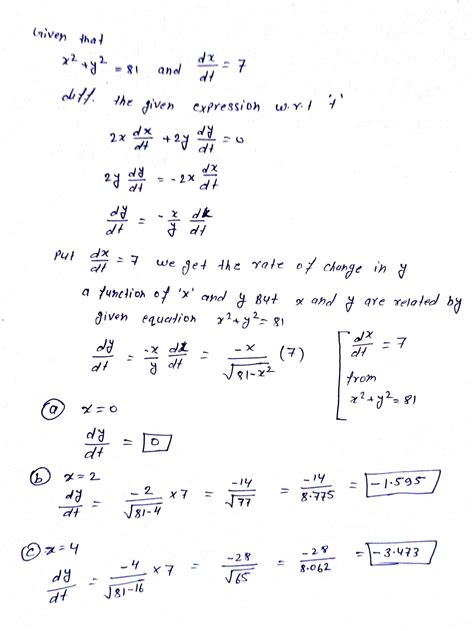 Given that
x² + y² = 81 and dx/dt = 7
diff. the given expression w.r.t 't'
2x dx/dt + 2y dy/dt = 0
2y dy/dt = -2x dx/dt
dy/dt = -x/y dx/dt
Put dx/dt = 7 we get the rate of change in y
a function of 'x' and y But x and y are related by
given equation x² + y² = 81
dy/dt = -x/y dx/dt = -x/√(81-x²) (7) [ dx/dt = 7
from
x² + y² = 81
(a) x = 0
dy/dt = 0
(b) x = 2
dy/dt = -2/√(81-4) × 7 = -14/√77 = -14/8.775 = -1.595
(c) x = 4
dy/dt = -4/√(81-16) × 7 = -28/√65 = -28/8.062 = -3.473